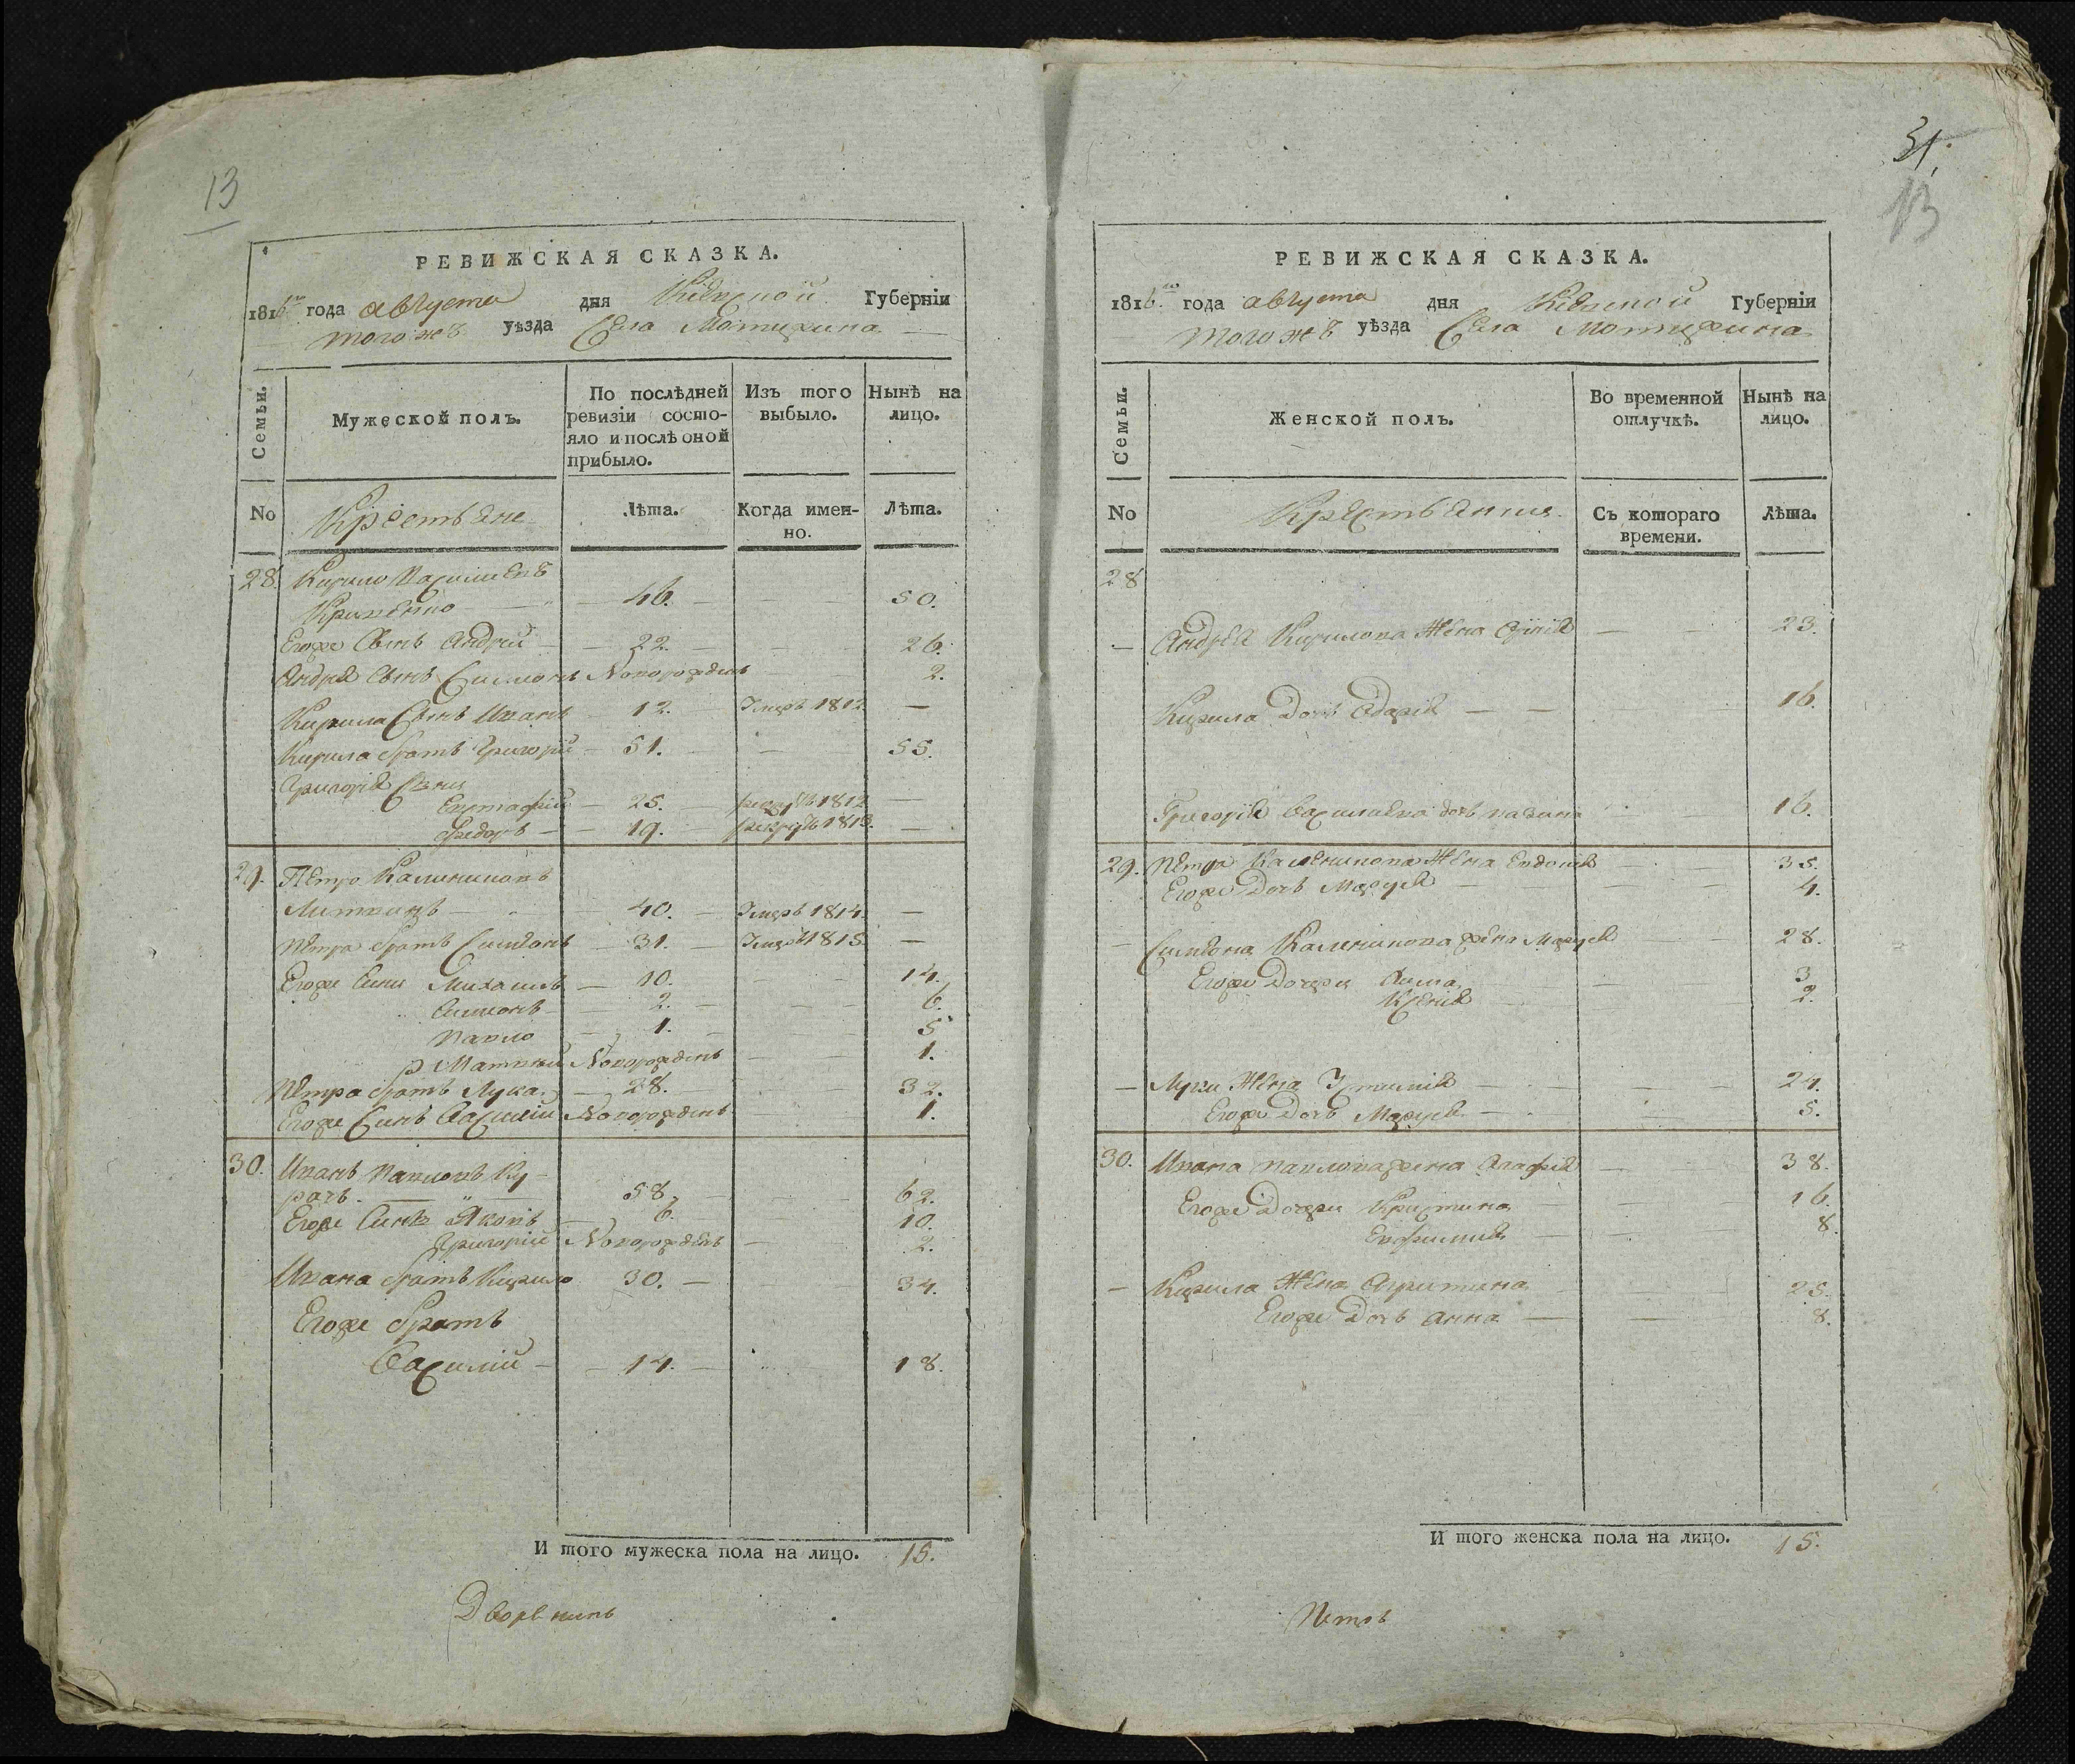 13
РЕВИЖСКАЯ СКАЗКА.
1816го года августа дня Киевской Губерніи
тогожъ уѣзда Села Мотижина
Семьи. Мужеской полъ. По послѣдней ревизіи состо-яло и послѣ оной прибыло. Изъ того выбыло. Нынѣ на лицо.
No Крестьяне Лѣта. Когда имен-но. Лѣта.
28. Кирило Василіевъ
46. 50.
Егоже Сынъ Андрей 22. 26.
Андрея Сынъ Симонъ Новорожденъ 2.
Кирила Сынъ Иванъ 12. Умеръ 1812
Кирила братъ Григорій 51. 55.
Григорія Сыны
Евстафій 25. 1812
Федоръ 19. 1813.
29. Петро Калениковъ
Литвинъ 40. Умеръ 1814.
Петра братъ Симеонъ 31. Умеръ 1815.
Егоже Сыны Михаилъ 10. 14.
Симеонъ 2. 6.
Павло 1. 5
Матвѣй Новорожденъ 1.
Петра братъ Лука 28. 32.
Егоже Сынъ Василій Новорожденъ 1.
30. Иванъ Павловъ Ку-
рачъ. 58. 62.
Егоже Сынъ Яковъ 6. 10.
Григорій Новорожденъ 2.
Ивана братъ Кирило 30. 34.
Егоже братъ
Василій 14. 18.
И того мужеска пола на лицо. 15.
31.
13
РЕВИЖСКАЯ СКАЗКА.
1816го года августа дня Киевской Губерніи
тогожъ уѣзда Села Мотижина
Семьи. Женской полъ. Во временной отлучкѣ. Нынѣ на лицо.
No Крестьянки Съ котораго времени. Лѣта.
28
Андрея Кирилова Жена 23.
Кирила Дочь Одарія 16.
Григорія Василиева дочь 16.
29. Петра Каленикова Жена Евдокия 35.
Егоже Дочь Марія 4.
Симеона Каленикова жена Марія 28.
Егоже Дочери Анна 3
Ксенія 2.
Луки Жена Устинія 24.
Егоже Дочь Марія 5.
30. Ивана Павлова жена Агафія 38.
Егоже Дочери Кристина 16.
Евфимия 8.
Кирила Жена Агритина 25.
Егоже Дочь Анна 8.
И того женска пола на лицо. 15.